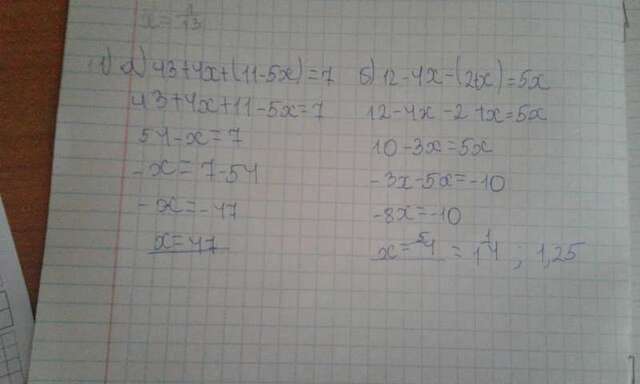 11) а) 43+4x+(11-5x)=7
43+4x+11-5x=7
54-x=7
-x=7-54
-x=-47
x=47
б) 12-4x-(2-x)=5x
12-4x-2+x=5x
10-3x=5x
-3x-5x=-10
-8x=-10
x=5/4=1 1/4; 1,25